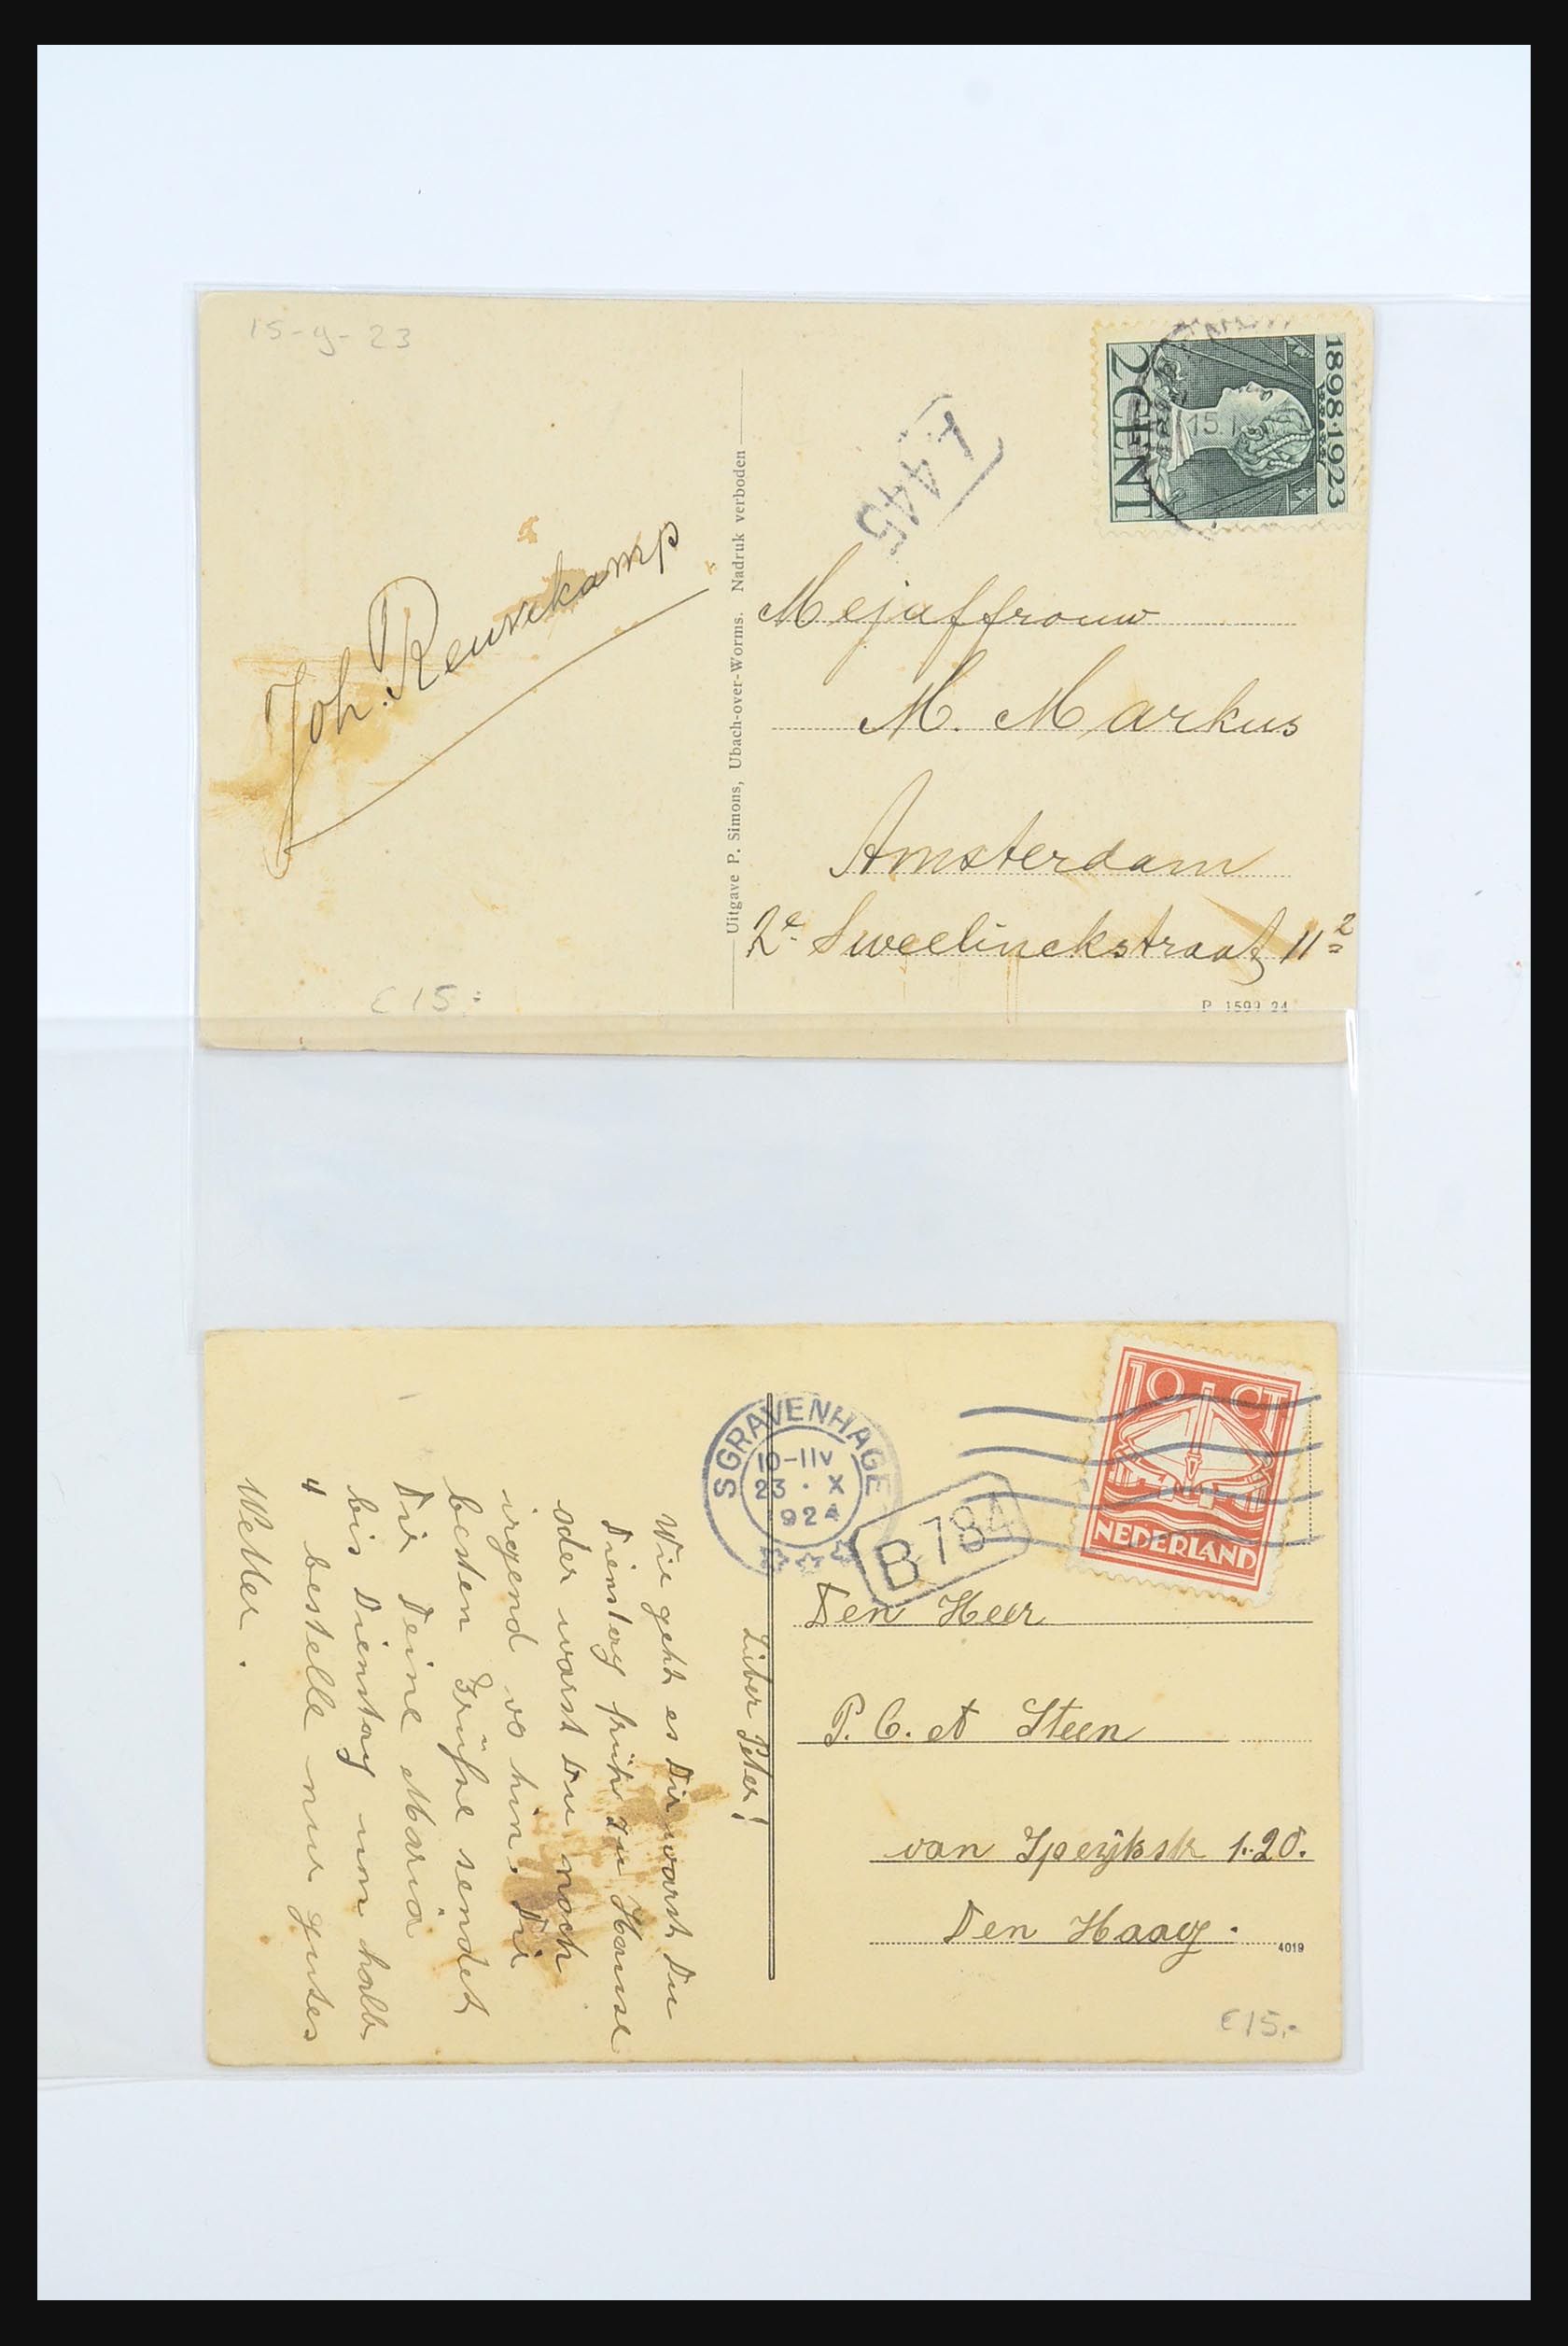 15-9-23
1898·1923
2 CENT
15.
A445
Mejuffrouw
M. Markus
Amsterdam
2e Sweelinckstraat 11²
Joh.
Uitgave P. Simons, Ubach-over-Worms. Nadruk verboden
€15.-
P 1599 24
10 CT
NEDERLAND
SGRAVENHAGE
10-11V
23 · X
924
B784
Den Heer
P. C. Steen
van Speijkstr 120.
Den Haag.
4019
€15.-
Lieber Peter!
Wie geht es Dir warst Du
Dienstag früh zu Hause
oder warst Du noch
irgend wo hin. Die
besten Grüße sendet
Dir Deine Maria
bis Dienstag um halb
4 bestelle nur gutes
Wetter.